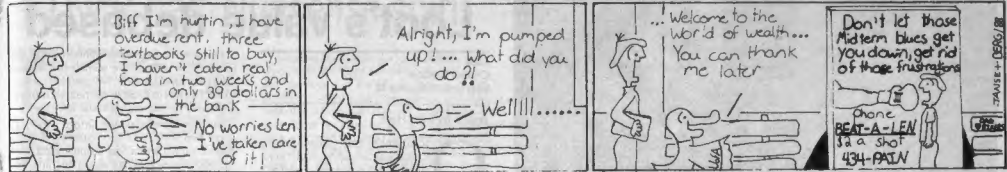 Biff I'm hurtin, I have
overdue rent, three
textbooks still to buy,
I haven't eaten real
food in two weeks and
only 39 dollars in
the bank
No worries Len
I've taken care
of it!
Alright, I'm pumped
up!... What did you
do?!
Wellllll......
...Welcome to the
world of wealth...
You can thank
me later
Don't let those
Midterm blues get
you down, get rid
of those frustrations
Phone
BEAT-A-LEN
$2 a shot
434-PAIN
UofA